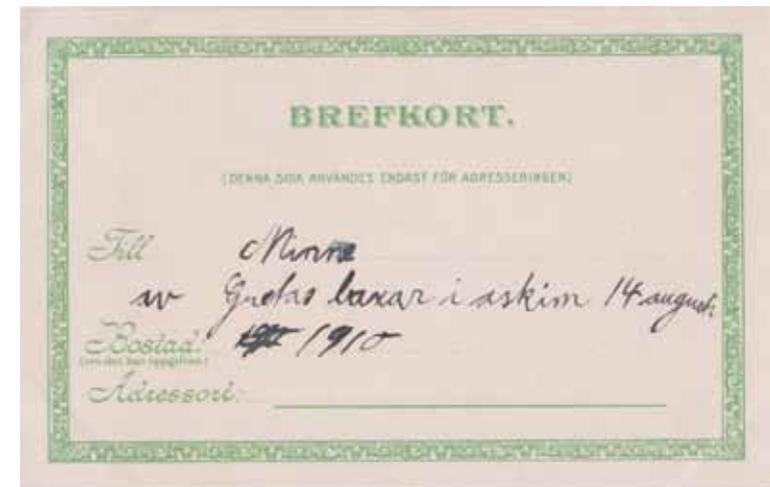 BREFKORT.
(DENNA SIDA ANVÄNDES ENDAST FÖR ADRESSERINGEN)
Till Minne
av Gretas laxar i askim 14 augusti
Bostad: 1910
Adressort: